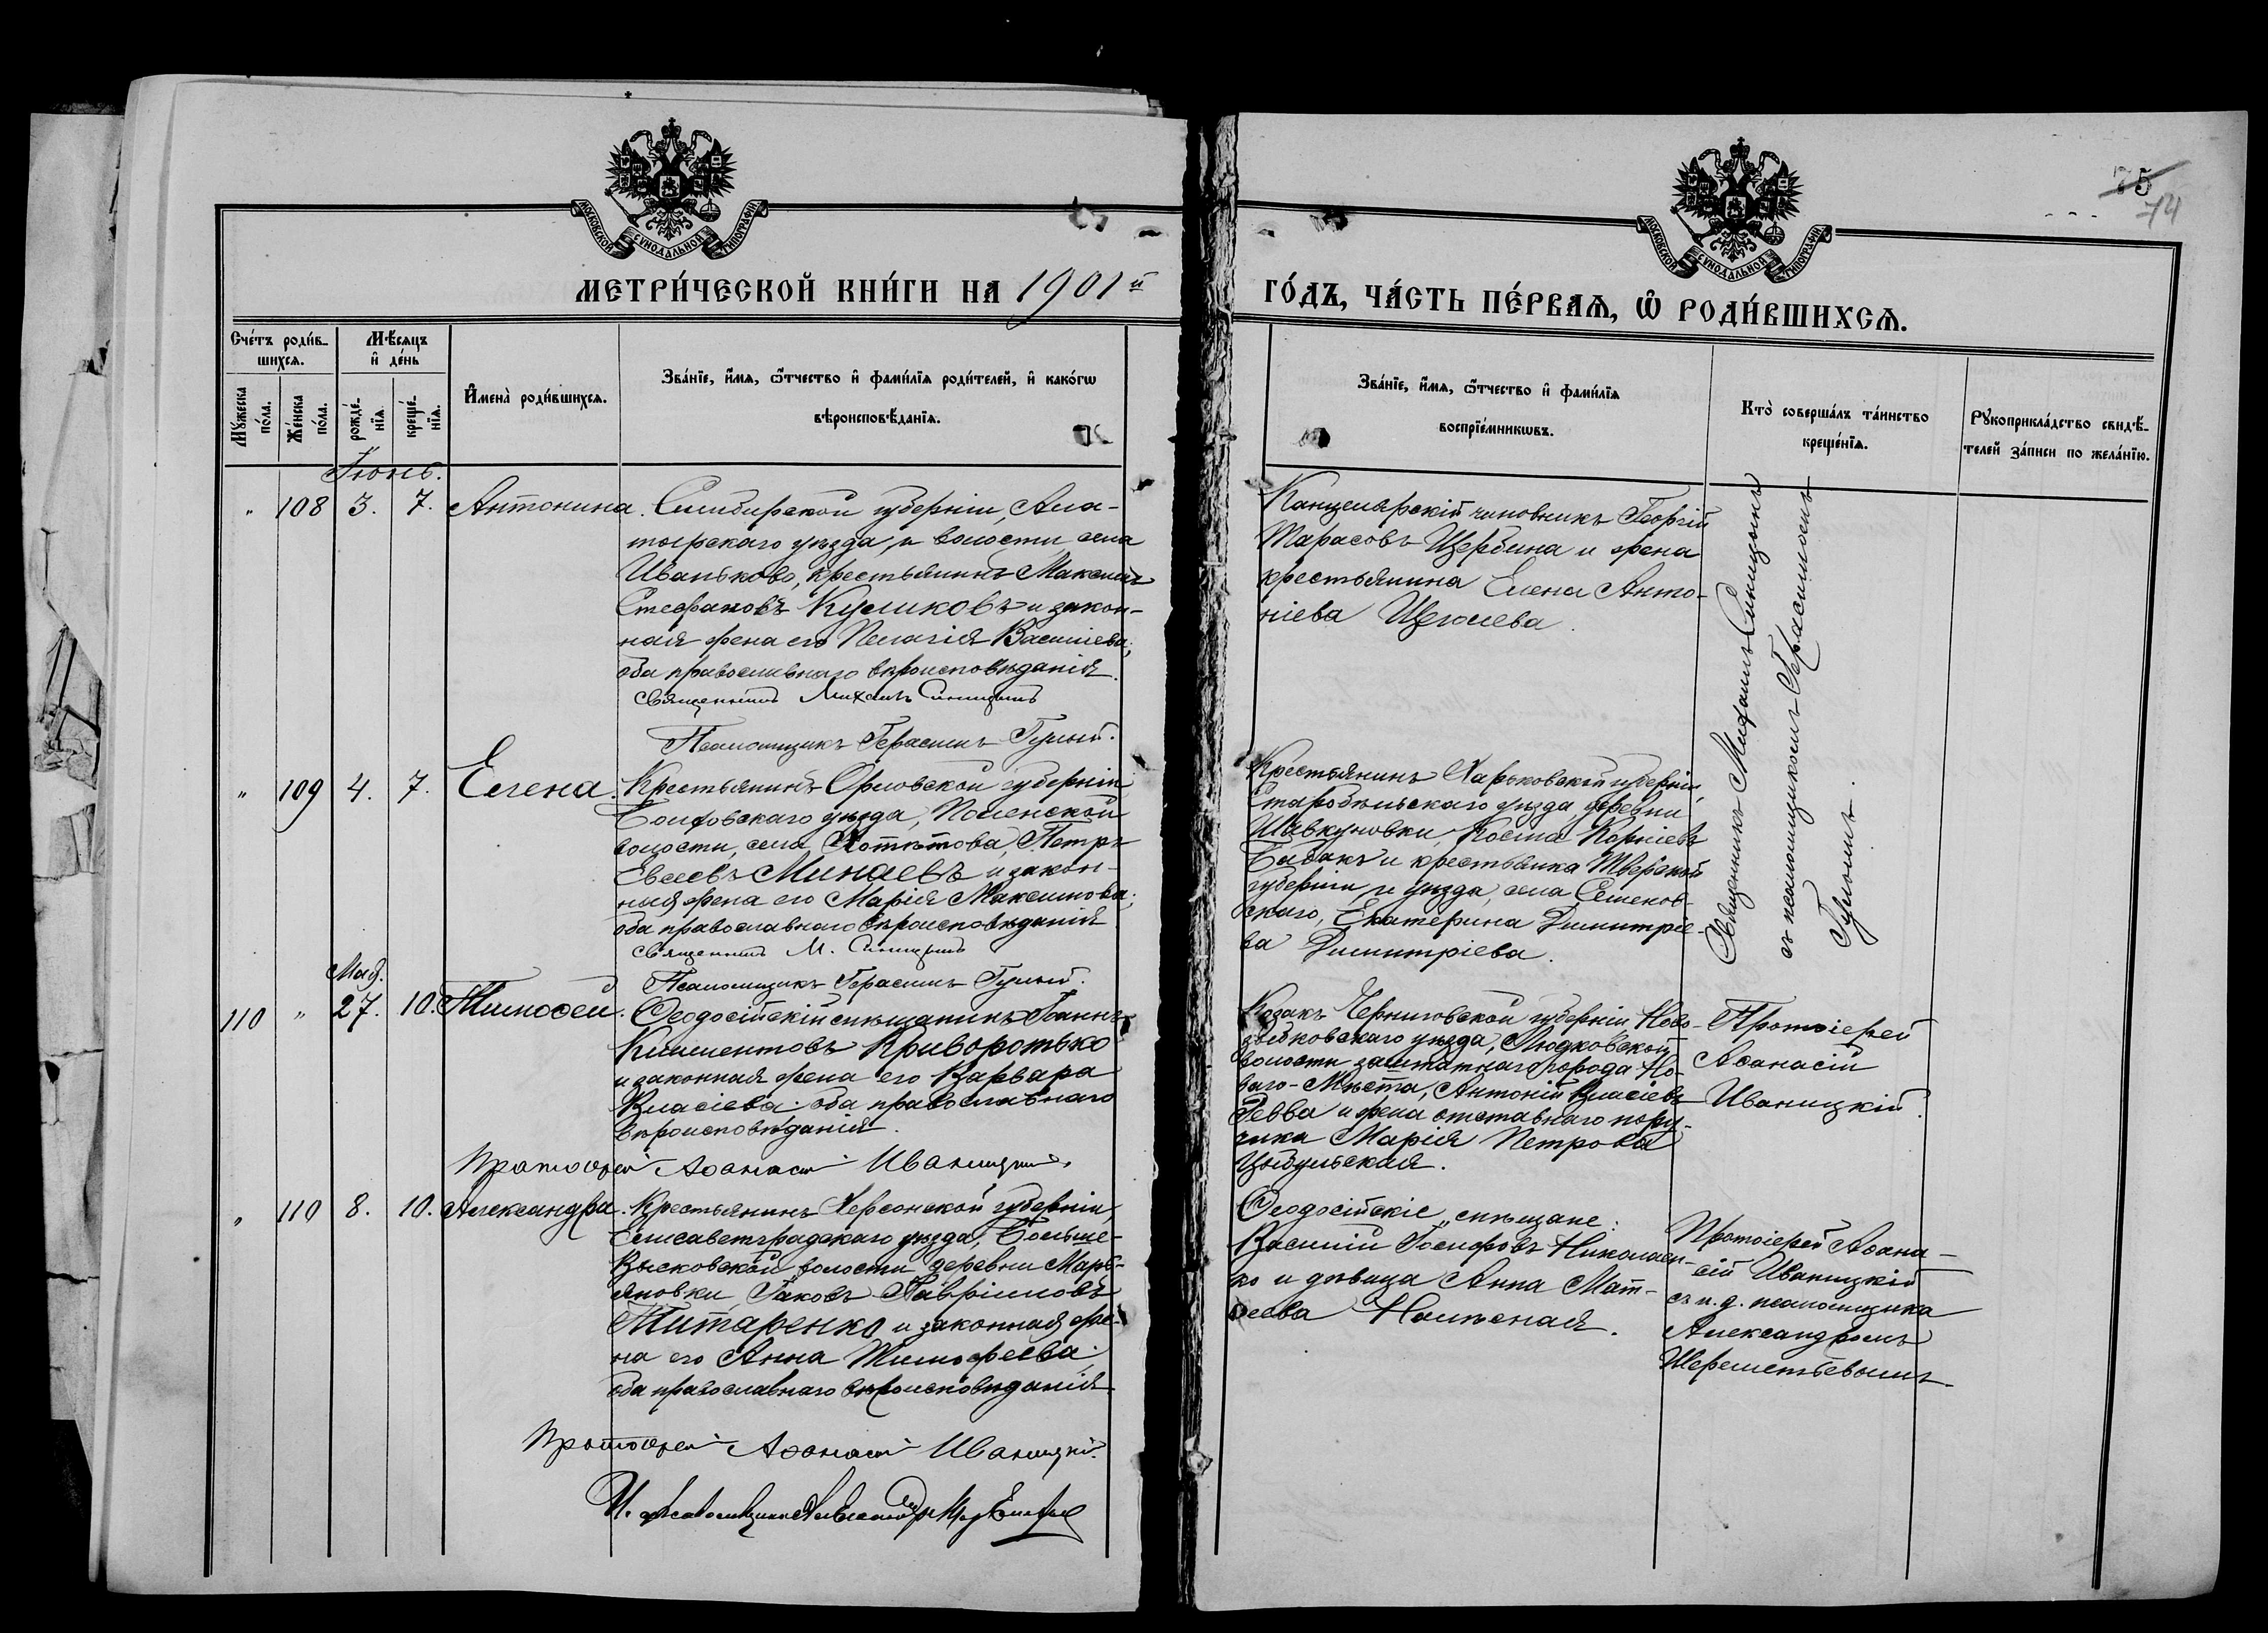 75
74
МОСКОВСКОЙ СѴНОДАЛЬНОЙ ТИПОГРАФІИ
МОСКОВСКОЙ СѴНОДАЛЬНОЙ ТИПОГРАФІИ
МЕТРИ́ЧЕСКОЙ КНИ́ГИ НА 1901й
ГО́ДЪ, ЧА́СТЬ ПЕ́РВАѦ, Ѡ҆ РОДИ́ВШИХСѦ.
Сче́тъ роди́в-
шихсѧ.
Мѣ́сѧцъ
и҆ де́нь
Мꙋ́жеска
по́ла.
Же́нска
по́ла.
рожде́-
нїѧ.
креще́-
нїѧ.
И҆мена̀ роди́вшихсѧ.
Зва́нїе, и҆́мѧ, ѻ҆́тчество и҆ фами́лїѧ роди́телей, и҆ како́гѡ
вѣроисповѣ́данїѧ.
Зва́нїе, и҆́мѧ, ѻ҆́тчество и҆ фами́лїѧ
воспрїе́мникѡвъ.
Кто̀ соверша́лъ та́инство
креще́нїѧ.
Рꙋкоприкла́дство свидѣ́-
телей за́писи по жела́нїю.
Іюнь.
" 108 3. 7. Антонина.
Симбирской губерніи, Ала-
тырскаго уѣзда и волости, села
Иваньково, крестьянинъ Максимъ
Стефановъ Куликовъ и закон-
ная жена его Пелагія Васильева;
оба православнаго вѣроисповѣданія.
Священникъ Михаилъ Синицынъ
Псаломщикъ Герасимъ Гулый.
Канцелярскій чиновникъ Георгій
Тарасовъ Щербина и жена
крестьянина Елена Анто-
ніева Щеголева.
Священникъ Михаилъ Синицынъ
съ псаломщикомъ Герасимомъ
Гулымъ.
" 109 4. 7. Елена.
Крестьянинъ Орловской губерніи
Болховскаго уѣзда,
волости, села Хотѣтова, Петръ
Евсеевъ Минаевъ и закон-
ная жена его Марія Максимова;
оба православнаго вѣроисповѣданія
Священникъ М. Синицынъ
Псаломщикъ Герасимъ Гулый.
Крестьянинъ Харьковской губерніи,
Старобѣльскаго уѣзда, деревни
Шавкуновки, Косма Корніевъ
Бабакъ и крестьянка Тверской
губерніи и уѣзда, села Семенов-
скаго, Екатерина Димитріе-
ва Димитріева.
Май.
110 " 27. 10. Тимоѳей.
Ѳеодосійскій мѣщанинъ Іоаннъ
Климентовъ Криворотько
и законная жена его Варвара
Власіева; оба православнаго
вѣроисповѣданія.
Протоіерей Аѳанасій Иваницкій.
Козакъ Черниговской губерніи Ново-
зыбковскаго уѣзда, Людковской
волости заштатнаго города Но-
ваго-Мѣста, Антоній Власіевъ
Ревва и жена отставнаго пору-
чика Марія Петрова
Цыбульская.
Протоіерей
Аѳанасій
Иваницкій.
" 110 8. 10. Александра.
Крестьянинъ Херсонской губерніи,
Елисаветградскаго уѣзда, Больше-
Высковской волости, деревни Марь-
яновки, Іаковъ Гавріиловъ
Титаренко и законная же-
на его Анна Тимофеева;
оба православнаго вѣроисповѣданія.
Протоіерей Аѳанасій Иваницкій.
И. д. псаломщика Александръ
Ѳеодосійскіе мѣщане:
Василій Іосифовъ Николаен-
ко и дѣвица Анна Мат-
ѳеева
Протоіерей Аѳана-
сій Иваницкій
съ и. д. псаломщика
Александромъ
Шереметьевымъ.